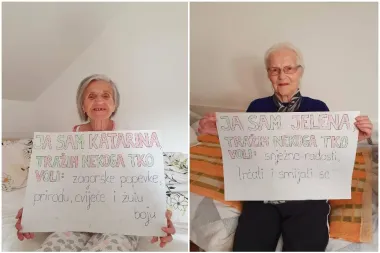 JA SAM KATARINA,
TRAŽIM NEKOGA TKO
VOLI: zagorske popevke,
prirodu, cvijeće i žutu
boju
JA SAM JELENA,
TRAŽIM NEKOGA TKO
VOLI: snježne radosti,
trčati i smijati se